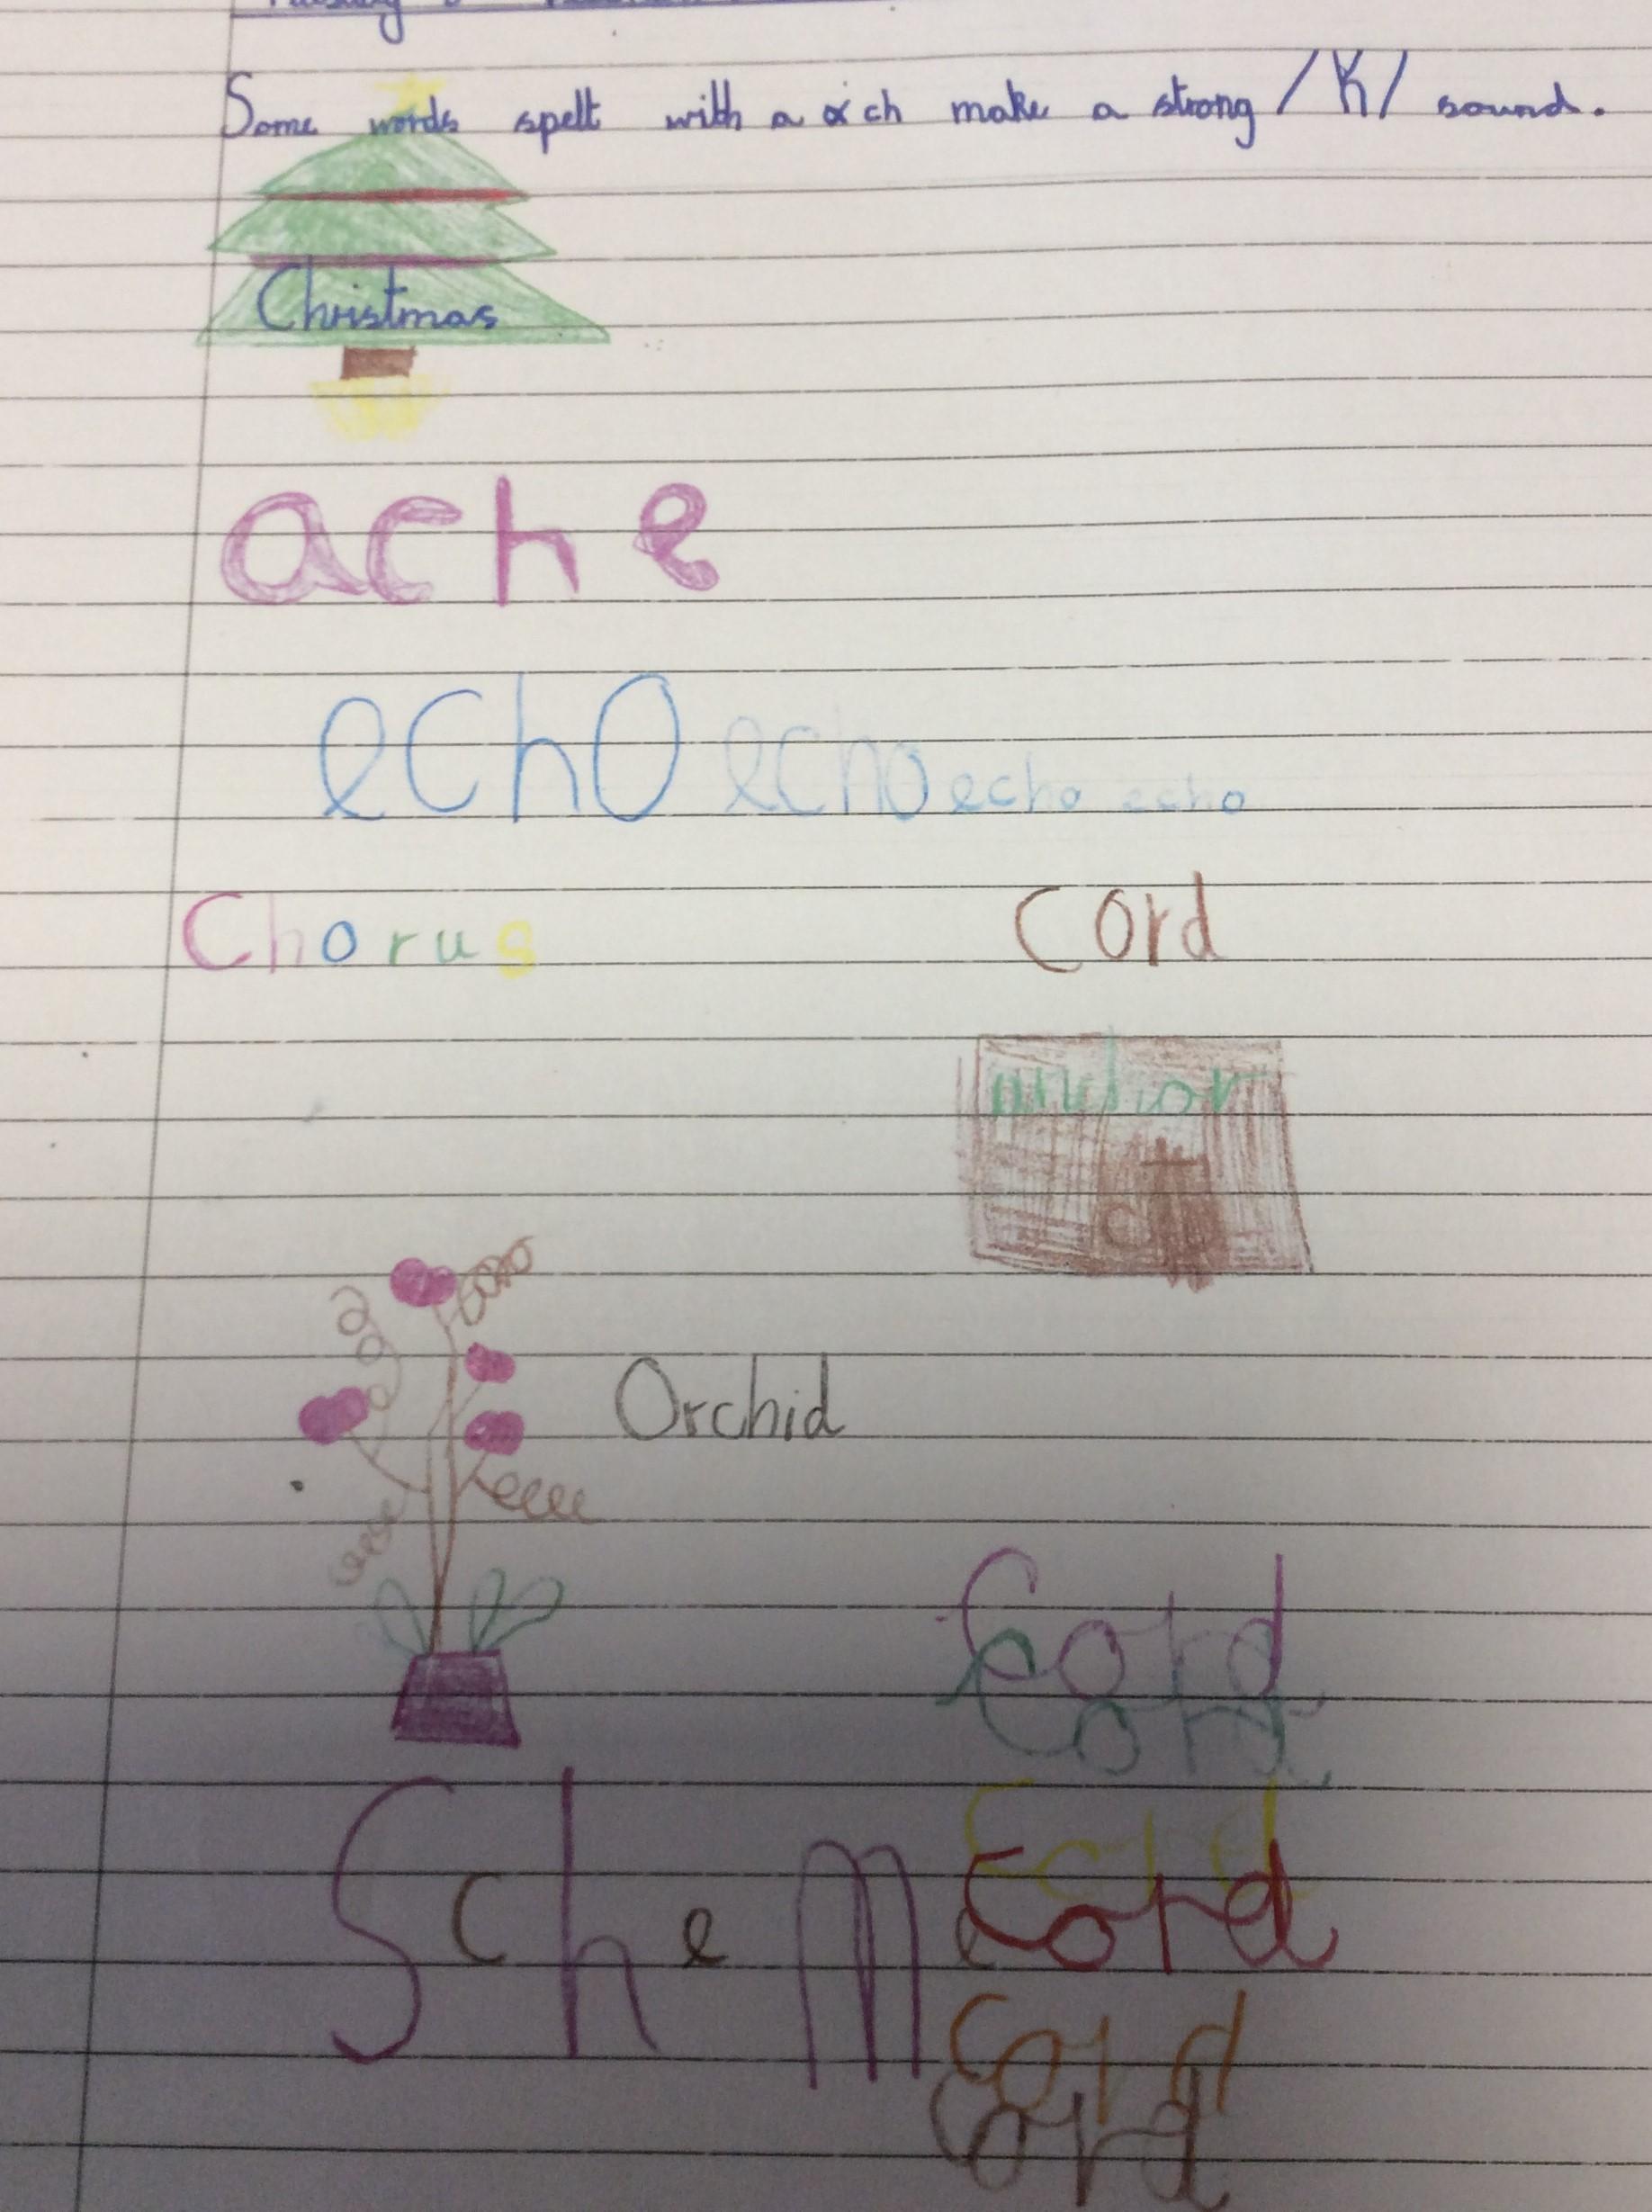 Some words spelt with a ch make a strong /K/ sound.
Christmas
ache
echo echo echo echo
Chorus
Cord
anchor
Orchid
Scheme
Cord
Cord
Cord
Cord
Cord
Cord